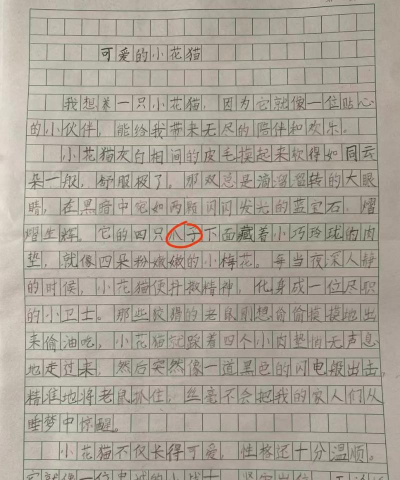 可爱的小花猫
我想养一只小花猫，因为它就像一位贴心
的小伙伴，能给我带来无尽的陪伴和欢乐。
小花猫灰白相间的皮毛摸起来软得如同云
朵一般，舒服极了。那双总是滴溜溜转的大眼
睛，在黑暗中宛如两颗闪闪发光的蓝宝石，熠
熠生辉。它的四只爪子下面藏着小巧玲珑的肉
垫，就像四朵粉嫩嫩的小梅花。每当夜深人静
的时候，小花猫便抖擞精神，化身成一位尽职
的小卫士。那些狡猾的老鼠刚想偷偷摸摸地出
来偷油吃，小花猫踮着四个小肉垫悄无声息
地走过来，然后突然像一道黑色的闪电般出击，
精准地将老鼠抓住，丝毫不会把我的家人们从
睡梦中惊醒。
小花猫不仅长得可爱，性格还十分温顺。